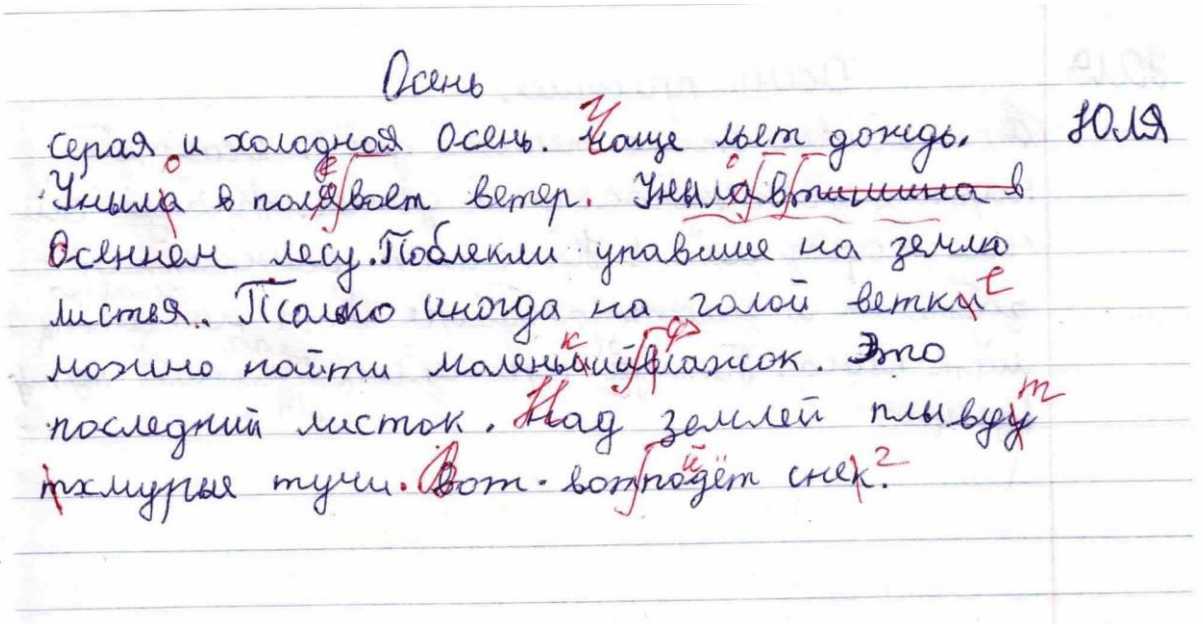 Осень
серая и холодная Осень. чаще льет дождь. Юля
Уныла в поля воет ветер. Уныла в тишина в
Осеннем лесу. Поблекли упавшие на землю
листья. Только иногда на голой ветки
можно найти маленьий влажок. Это
последний листок. Над землей плывду
тхмурые тучи. Вот-вот подёт снек.